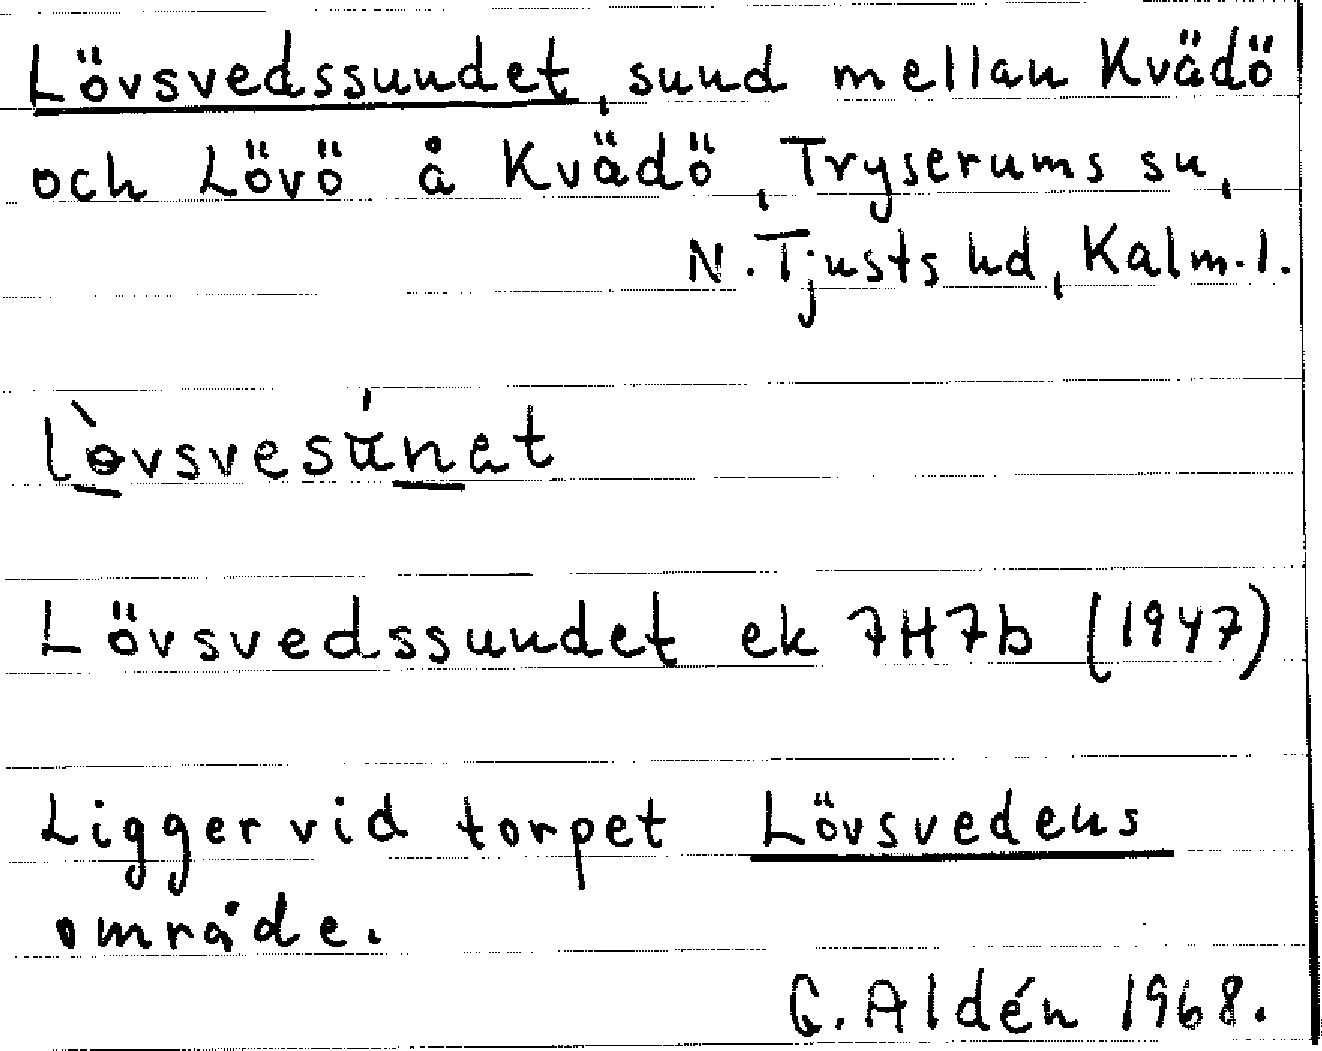 Lövsvedssundet, sund mellan Kvädö
och Lövö å Kvädö, Tryserums sn,
N. Tjusts hd, Kalm. l.
lòvsvesúnat
Lövsvedssundet ek 7H7b (1947)
Ligger vid torpet Lövsvedens
område.
G. Aldén 1968.